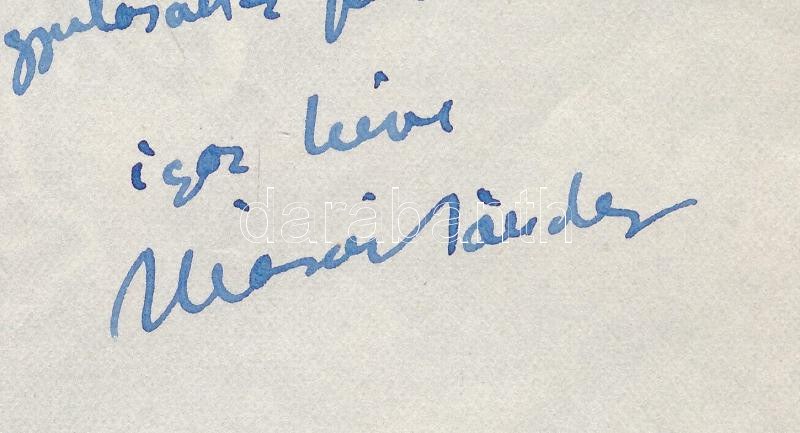 igaz híve
Márai Sándor
darabanth